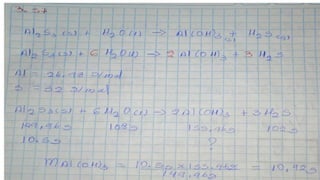 Al₂S₃(s) + H₂O(l) → Al(OH)₃(s) + H₂S(g)
Al₂S₃(s) + 6H₂O(l) → 2Al(OH)₃ + 3H₂S
Al = 26.98 g/mol
S = 32 g/mol
Al₂S₃(s) + 6H₂O(l) → 2Al(OH)₃ + 3H₂S
108g 155.96g 102g
10.5g ?
mAl(OH)₃ = = 10.92g